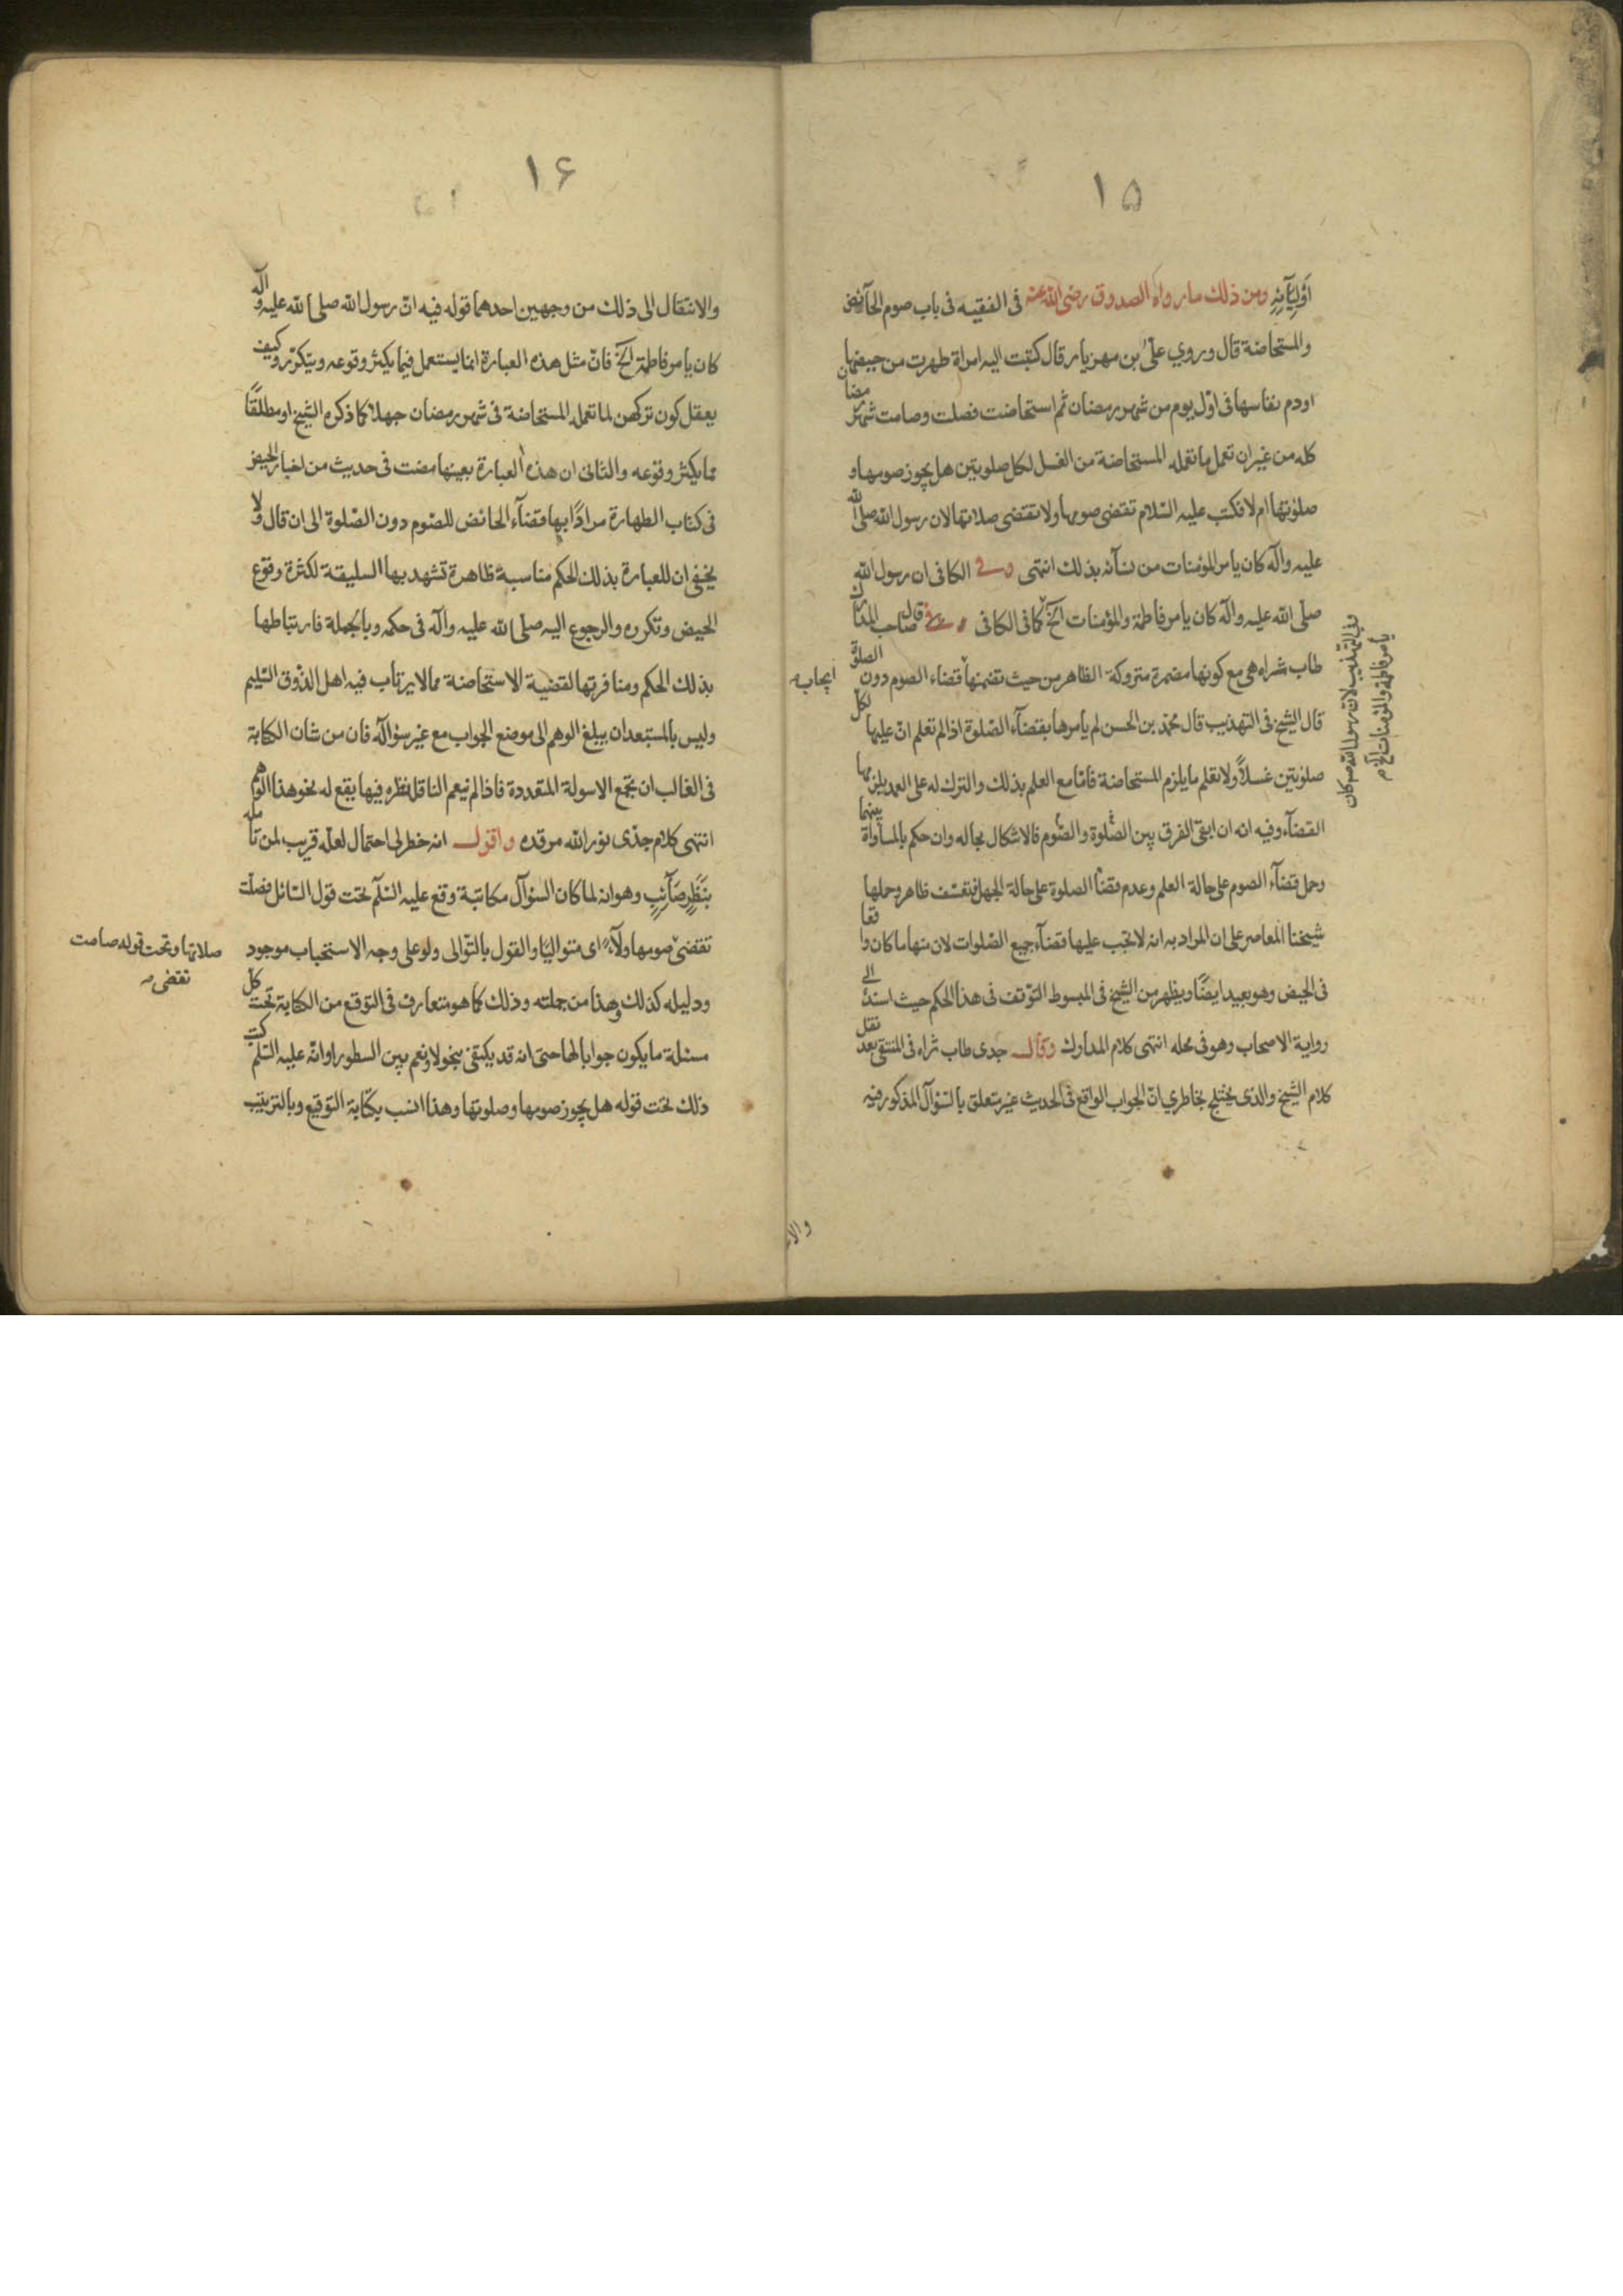 ١٥
اَوْلِيَآئِهِ ومن ذلك ما رواه الصدوق رضى الله عنه فى الفقيه فى باب صوم الحآئض
والمستحاضة قال وروي علىّ بن مهزيار قال كتبت اليه امراة طهرت من حيضها
اودم نفاسها فى اوّل يوم من شهر رمضان ثم استحاضت فصلت وصامت شهر رمضان
كله من غيران تعمل ما تعمله المستحاضة من الغسل لكل صلوتين هل يجوز صومها و
صلوتها ام لا فكتب عليه السّلام تقتضى صومها ولا تقتضى صلاتها لان رسول الله صلى الله
عليه وآله كان يامر المؤمنات من نسآئه بذلك انتهى وفى الكافى ان رسول الله
صلّى الله عليه وآله كان يامر فاطمة والمؤمنات الخ كما فى الكافى قال صاحب المدارك
طاب ثراه هى مع كونها مضمرة متروكة الظاهر من حيث تضمنها قضاء الصوم دون الصلوة
ايجاب
قال الشيخ فى التهذيب قال محمّد بن الحسن لم يامرها بقضآء الصّلوة اذا لم تعلم انّ عليها لكل
صلوتين غسلاً ولا تعلم ما يلزم المستحاضة فامّا مع العلم بذلك والترك له على العمد يلزمها
القضآء وفيه انه ان ابقى الفرق بين الصّلوة والصّوم فالاشكال بحاله وان حكم بالمساواة بينهما
وحمل قضآء الصوم على حالة العلم وعدم قضآء الصلوة على حالة الجهل فتعسّف ظاهر وحملها
شيخنا المعاصر على ان المراد به انه لا تجب عليها قضآء جميع الصّلوات لان منها ما كان واقعا
فى الحيض وهو بعيد ايضًا ويظهر من الشيخ فى المبسوط التوّقف فى هذا الحكم حيث اسنده الى
رواية الاصحاب وهو فى محله انتهى كلام المدارك وقال جدى طاب ثراه فى المنتقى بعد نقل
كلام الشيخ والذى يختلج بخاطري انّ الجواب الواقع فى الحديث غير متعلق بالسّؤال المذكور فيه
وفى التهذيب لان رسول الله ص كان
يأمر فاطمة والمؤمنات الخ م
١۶
والانتقال الى ذلك من وجهين احدهما قوله فيه انّ رسول الله صلى الله عليه وآله
كان يا مر فاطمة الخ فانّ مثل هذه العبارة انما يستعمل فيما يكثر وقوعه ويتكرّر وكيف
يعقل كون تركهن لما تعمله المستحاضة فى شهر رمضان جهلا كما ذكره الشيخ او مطلقًا
مما يكثر وقوعه والثانى ان هذه العبارة بعينها مضت فى حديث من اخبار الحيض
فى كتاب الطهارة مرادًا بها قضآء الحائض للصّوم دون الصّلوة الى ان قال ولا
يخفى ان للعبارة بذلك الحكم مناسبة ظاهرة تشهد بها السليقة لكثرة وقوع
الحيض وتكرره والرجوع اليه صلّى الله عليه وآله فى حكمه وبالجملة فارتباطها
بذلك الحكم ومنافرتها لقضية الاستحاضة مما لا يرتاب فيه اهل الذّوق السّليم
وليس بالمستبعد ان يبلغ الوهم الى موضع الجواب مع غير سؤاله فان من شان الكتابة
فى الغالب ان تجمع الاسولة المتعددة فاذا لم ينعم الناقل نظره فيها يقع له نحو هذا الوهم
انتهى كلام جدّى نور الله مرقده واقول انه خطر لى احتمال لعله قريب لمن تأمله
بِنَظَرٍ صَآئِبٍ وهو انه لما كان السؤآل مكاتبة وقع عليه السّلم تحت قول السّائل فصلّت
تقتضى صومها ولآء اى متواليًا والقول بالتّوالى ولو على وجه الاستحباب موجود
صلاتها وتحت قوله صامت
تقضى
ودليله كذلك وهذا من جملته وذلك كما هو متعارف فى التوقيع من الكتابة تحت كل
مسئلة ما يكون جوابا لها حتى انه قد يكتفى بنحو لا ونعم بين السطور او انه عليه السّلم كتب
ذلك تحت قوله هل يجوز صومها وصلوتها وهذا انسب بكتابة التوقيع وبالترتيب
والا